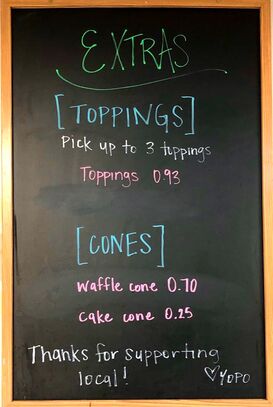 EXTRAS
[TOPPINGS]
Pick up to 3 toppings
Toppings 0.93
[CONES]
Waffle cone 0.70
Cake cone 0.25
Thanks for supporting
local!
♡YOPO